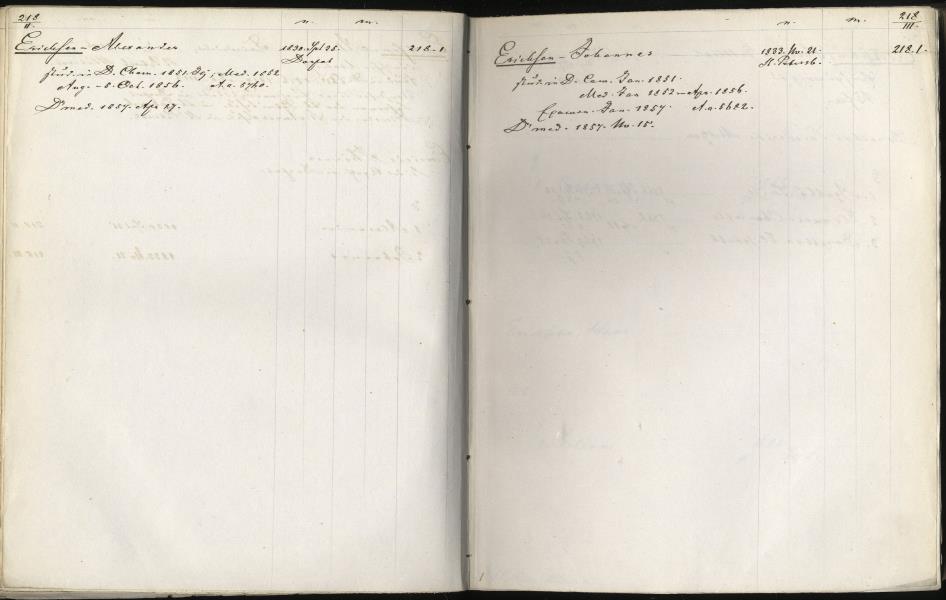 218
II.
n. m.
Erichsen - Alexander 1830. Spt 25. 218.1.
Dorpat
stud. in D. Chem. 1851. Med. 1852
Aug. - 5. Oct. 1856. A.a. 5740.
Dr med. 1857. Apr. 27.
n. m. 218
III.
Erichsen - Johannes 1833. Nov. 21. 218.1.
St. Petersb.
stud. in D. Cam. Jan. 1851.
Med. Jan 1852 - Apr. 1856.
Examen. Jan. 1857. A.a. 5682.
Dr med. 1857. Nov. 15.